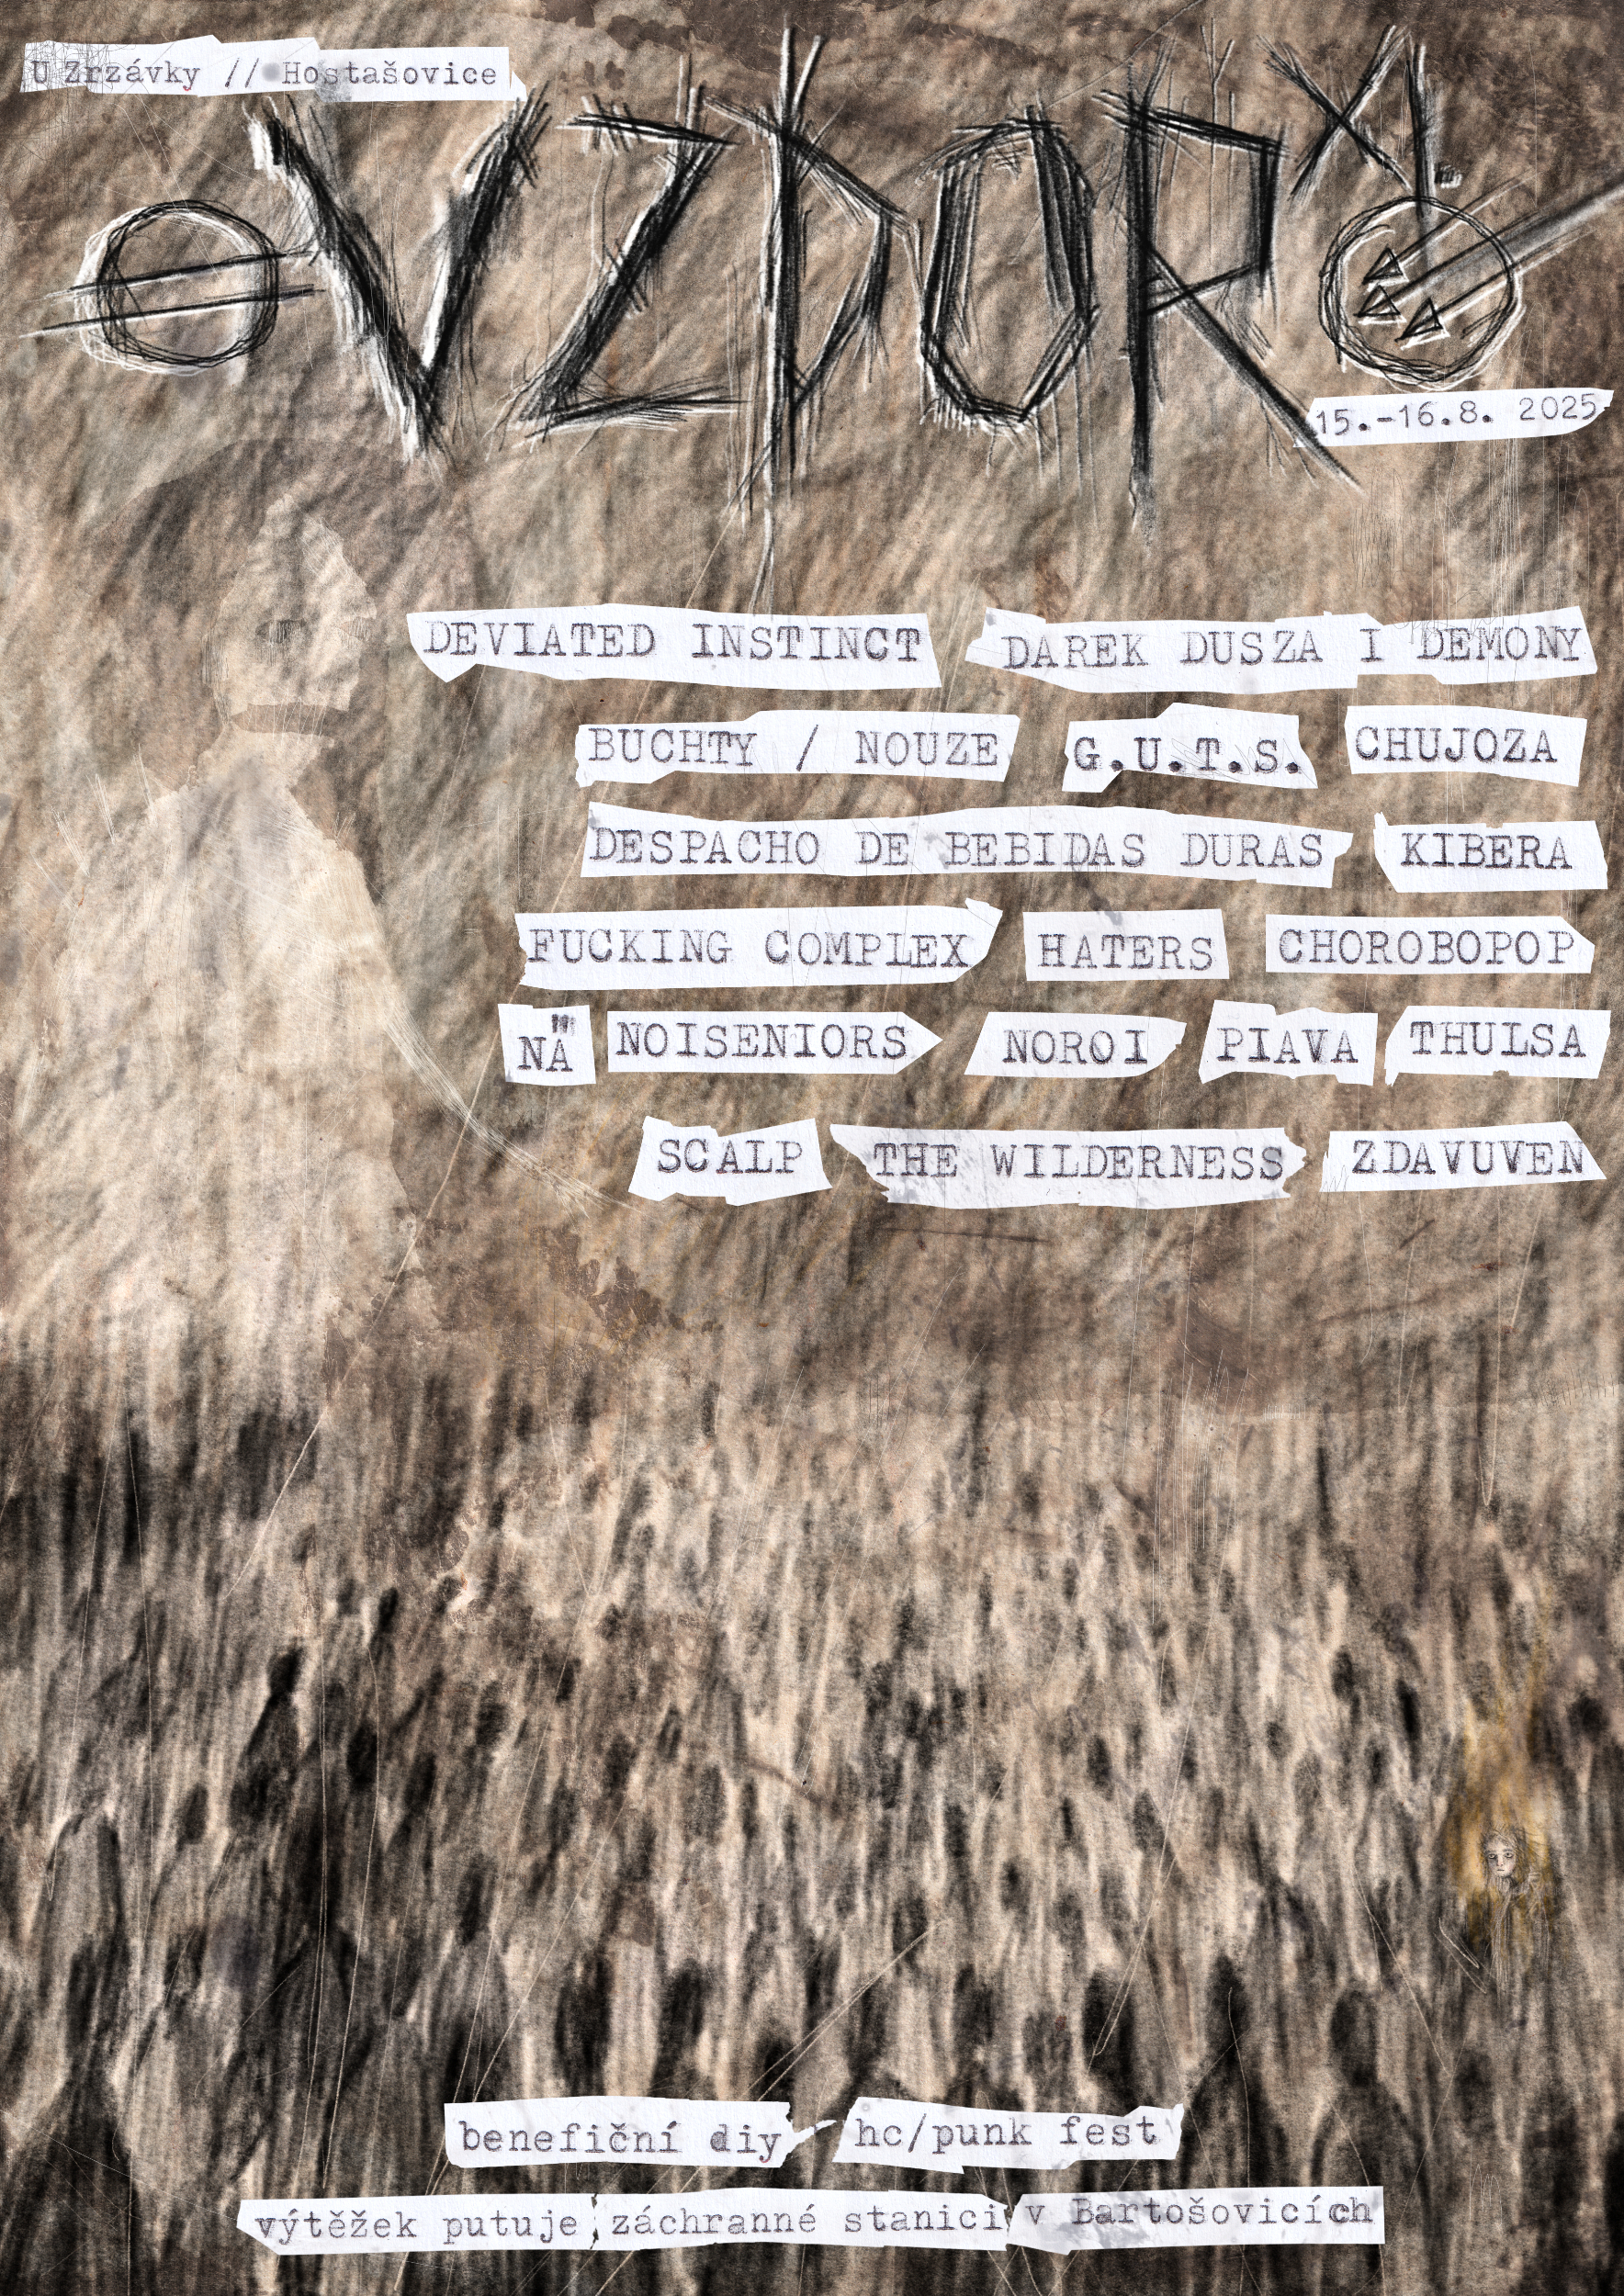 U Zrzávky // Hostašovice
VZDOR XI.
15.-16.8. 2025
DEVIATED INSTINCT DAREK DUSZA I DEMONY
BUCHTY / NOUZE G.U.T.S. CHUJOZA
DESPACHO DE BEBIDAS DURAS KIBERA
FUCKING COMPLEX HATERS CHOROBOPOP
NÄ NOISENIORS NOROI PIAVA THULSA
SCALP THE WILDERNESS ZDAVUVEN
benefiční diy hc/punk fest
výtěžek putuje záchranné stanici v Bartošovicích